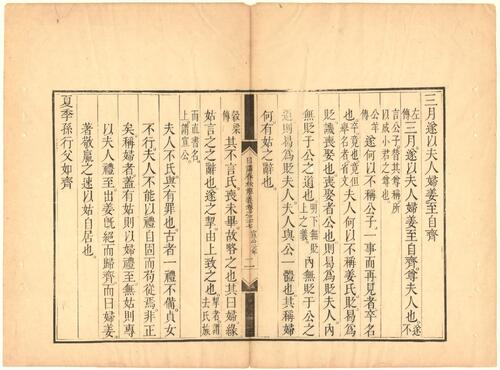 三月遂以夫人婦姜至自齊
左傳三月遂以夫人婦姜至自齊尊夫人也不
言公子替其尊稱所
以成小君之尊也
公羊傳遂何以不稱公子一事而再見者卒名
也卒竟也竟但舉名者省文夫人何以不稱姜氏貶曷為
貶譏喪娶也喪娶者公也則曷為貶夫人內
無貶于公之道也明下無貶上之義內無貶于公之
道則曷為貶夫人夫人與公一體也其稱婦
何有姑之辭也
穀梁傳其不言氏喪未畢故略之也其曰婦緣
姑言之之辭也遂之挈由上致之也挈者謂去氏族
而直書名
上謂宣公
夫人不氏與有罪也古者一禮不備貞女
不行夫人不能以禮自固而苟從焉非正
矣稱婦者蓋有姑則以婦禮至無姑則專
以夫人禮至出姜旣絕而歸齊而曰婦姜
著敬嬴之速以姑自居也
夏季孫行父如齊